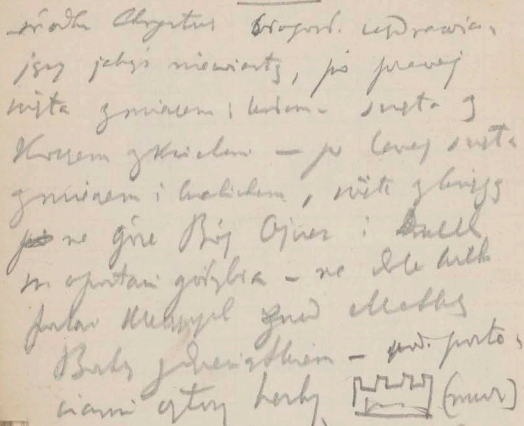 środku Chrystus błogosł. uzdrawia-
jący jakąś niewiastę, po prawej
święta z mieczem i
koszem z kwiatem — po lewej święta
z mieczem i kielichem, święta z księgą
na górze Bóg Ojciec i
w postaci gołębia — na dole kilka
postaci przed Matką
Boską z dzieciątkiem — pod. posta-
ciami cztery herby (mur)